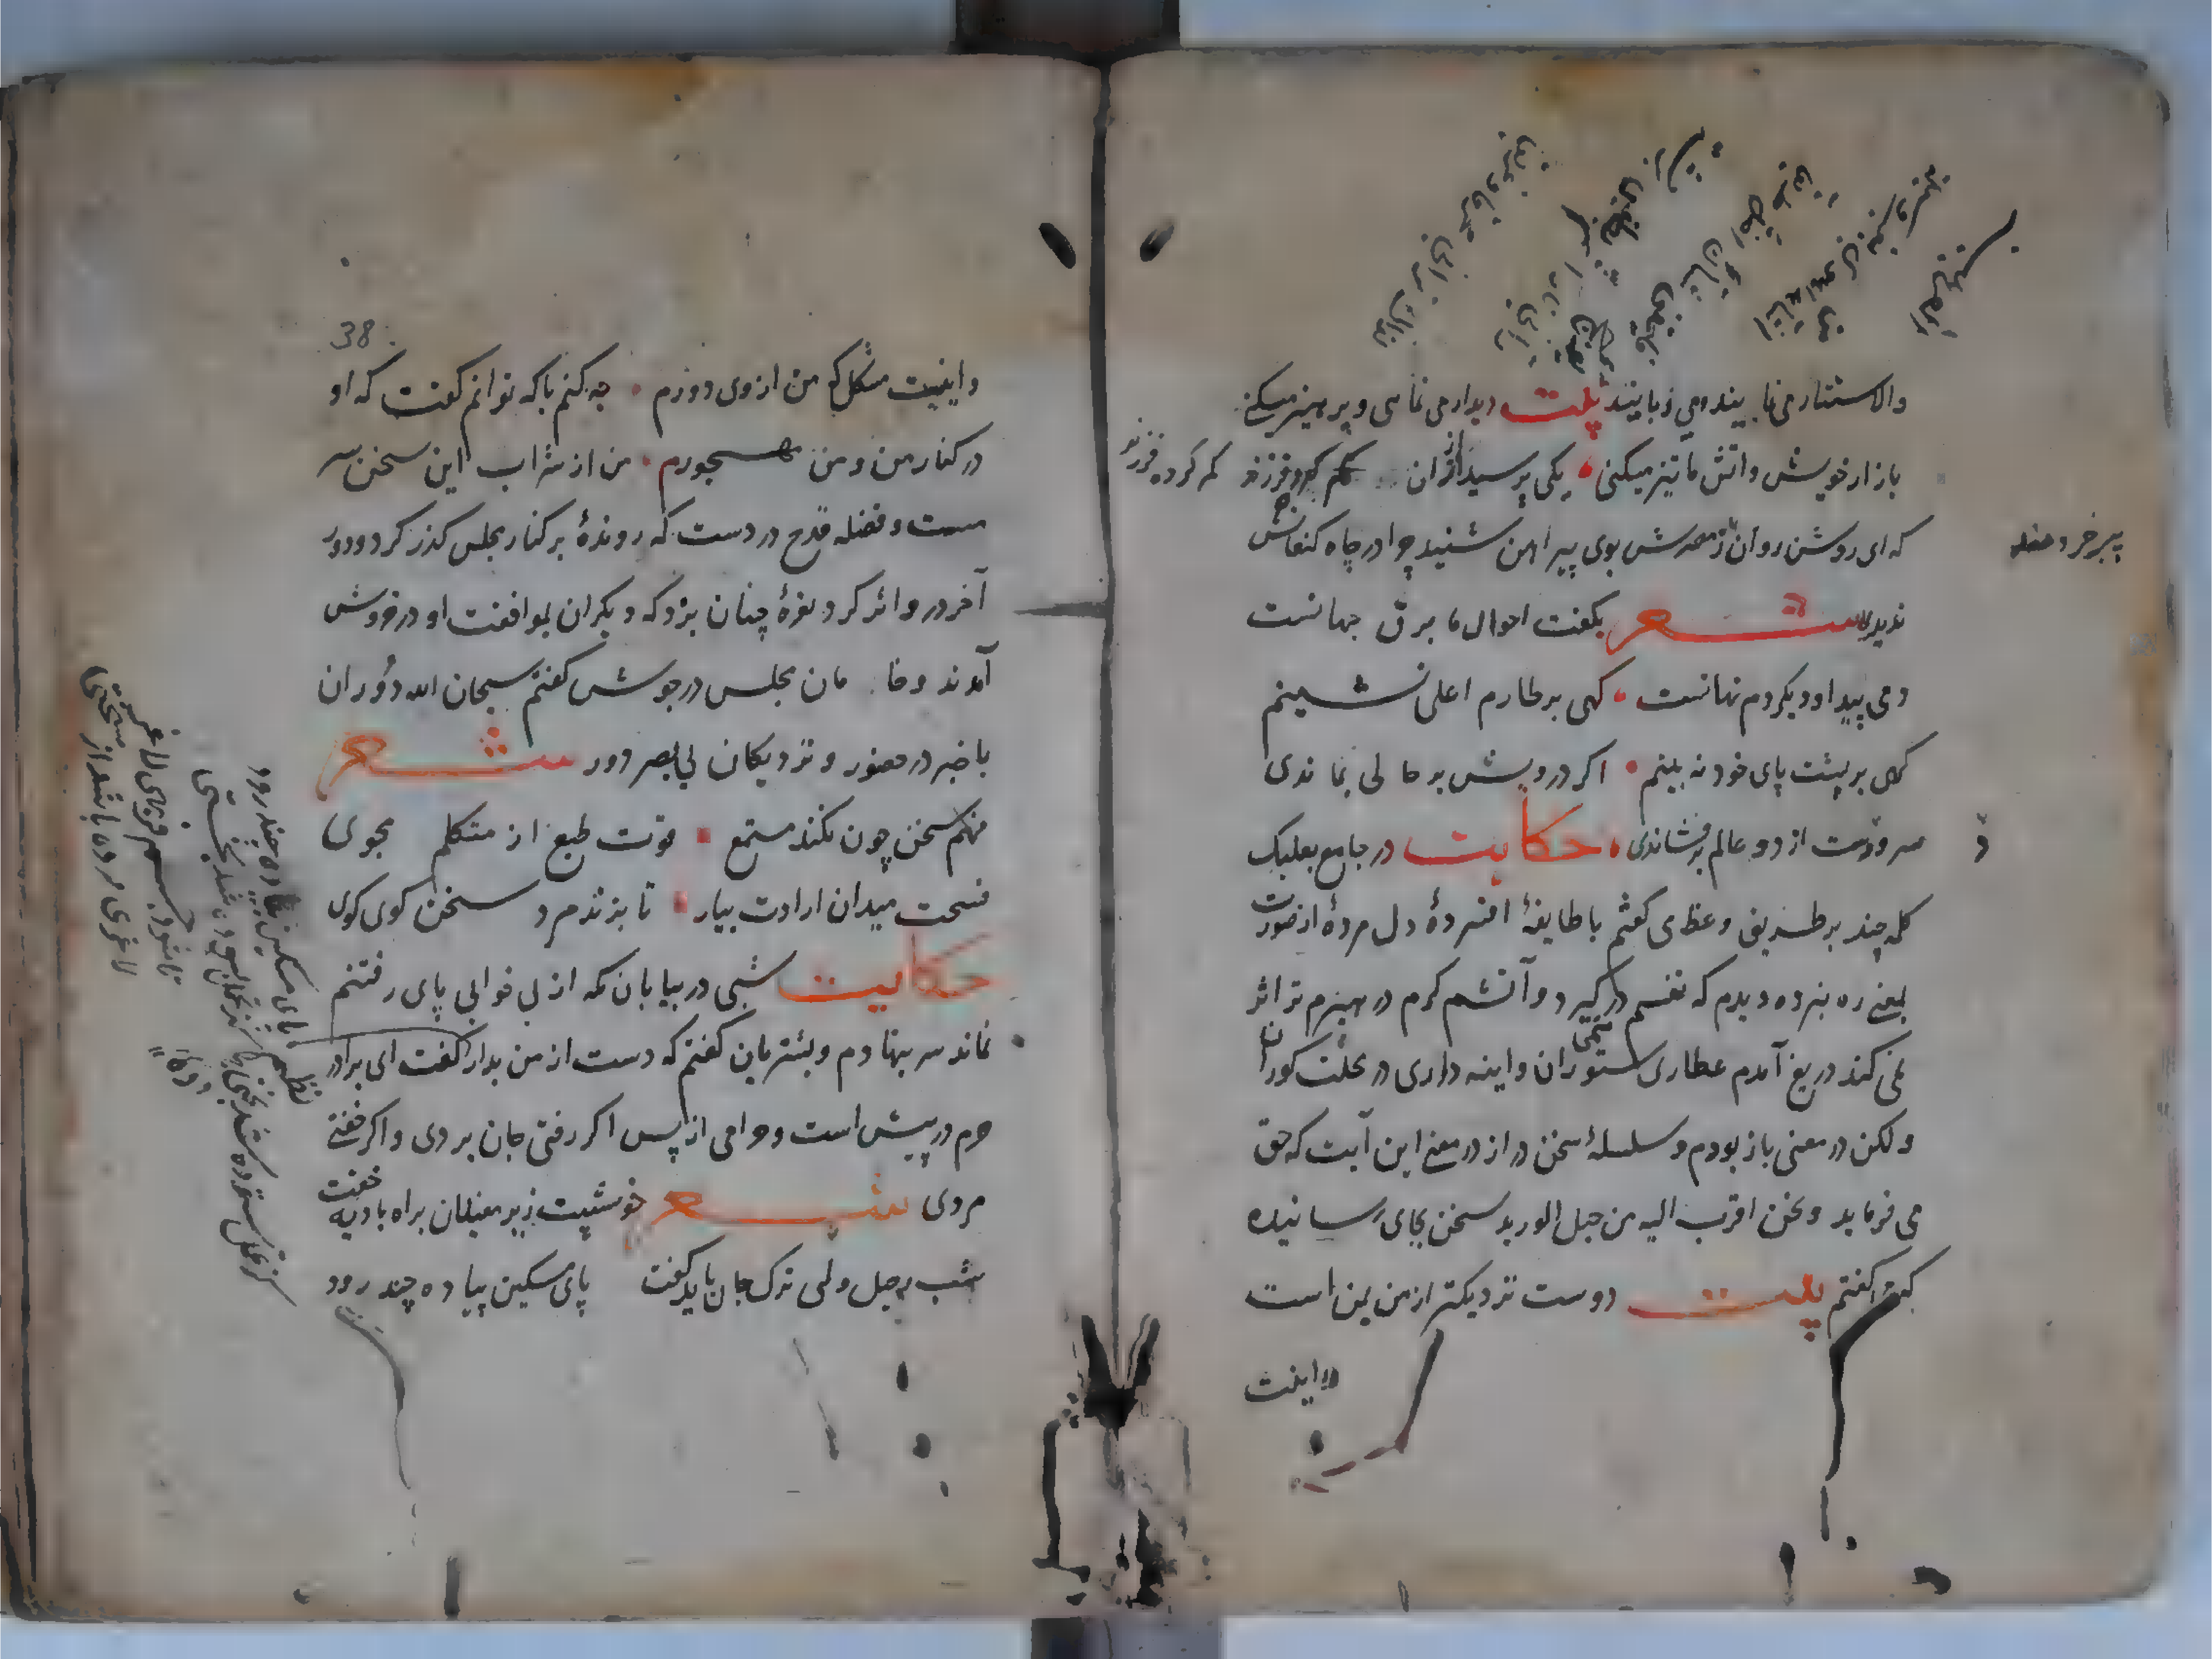 والاستتار می نمایند و می ربایند بیت دیدار می نمایی و پرهیز میکنی
بازار خویش و آتش ما تیز میکنی یکی پرسید ازان کم کرده فرزند
که ای روشن روان ز مصرش بوی پیراهن شنیدی چرا در چاه کنعانش
پیر خردمند
ندیدی شعر بکفت احوال ما برق جهانست
دمی پیدا و دیکر دم نهانست کهی بر طارم اعلی نشینم
کهی بر پشت پای خود نه بینم اکر درویش بر حالی بماندی
سر و دست از دو عالم برفشاندی حکایت در جامع بعلبک
کلمه چند بر طریق وعظ می کفتم با طایفهٔ افسردهٔ دل مردهٔ از صورت
بمعنی ره نبرده دیدم که نفسم در نمی کیرد و آتشم کرم در هیزم تر اثر
نمی کند دریغ آمدم عطاری ستوران و اینه داری در محلت کوران
ولکن در معنی باز بودم و سلسلهٔ سخن دراز در معنی این آیت که حق
می فرماید و نحن اقرب الیه من حبل الورید سخن بجای رسانیده
که کفتم بیت دوست نزدیکتر از من بمن است
واینت
38
واینت مشکل که من از وی دورم چه کنم با که توانم کفت که او
در کنار من و من مهجورم من از شراب این سخن سر
مست و فضله قدح در دست که روندهٔ بر کنار مجلس کذر کرد و دور
آخر در و اثر کرد نعرهٔ چنان بزد که دیکران بموافقت او در خروش
آمدند و خامان مجلس در جوش کفتم سبحان الله دوران
با خبر در حضور و نزدیکان بی بصر دور شعر
فهم سخن چون نکند مستمع قوت طبع از متکلم مجوی
فسحت میدان ارادت بیار تا بزند مرد سخن کوی کوی
حکایت شبی در بیابان مکه از بی خوابی پای رفتنم
نماند سر بنهادم و بشتربان کفتم که دست از من بدار کفت ای برادر
حرم در پیش است و حرامی از پس اکر رفتی جان بردی و اکر خفتی
مردی شعر خوشیست زیر مغیلان براه بادیه خفت
شب رحیل ولی ترک جان باید کفت پای مسکین پیاده چند رود
نظم پای مسکین پیاده چند رود
کز تحمل ستوده شد بختی
تا شود جسم فربهی لاغر
لاغری مرده باشد از سختی